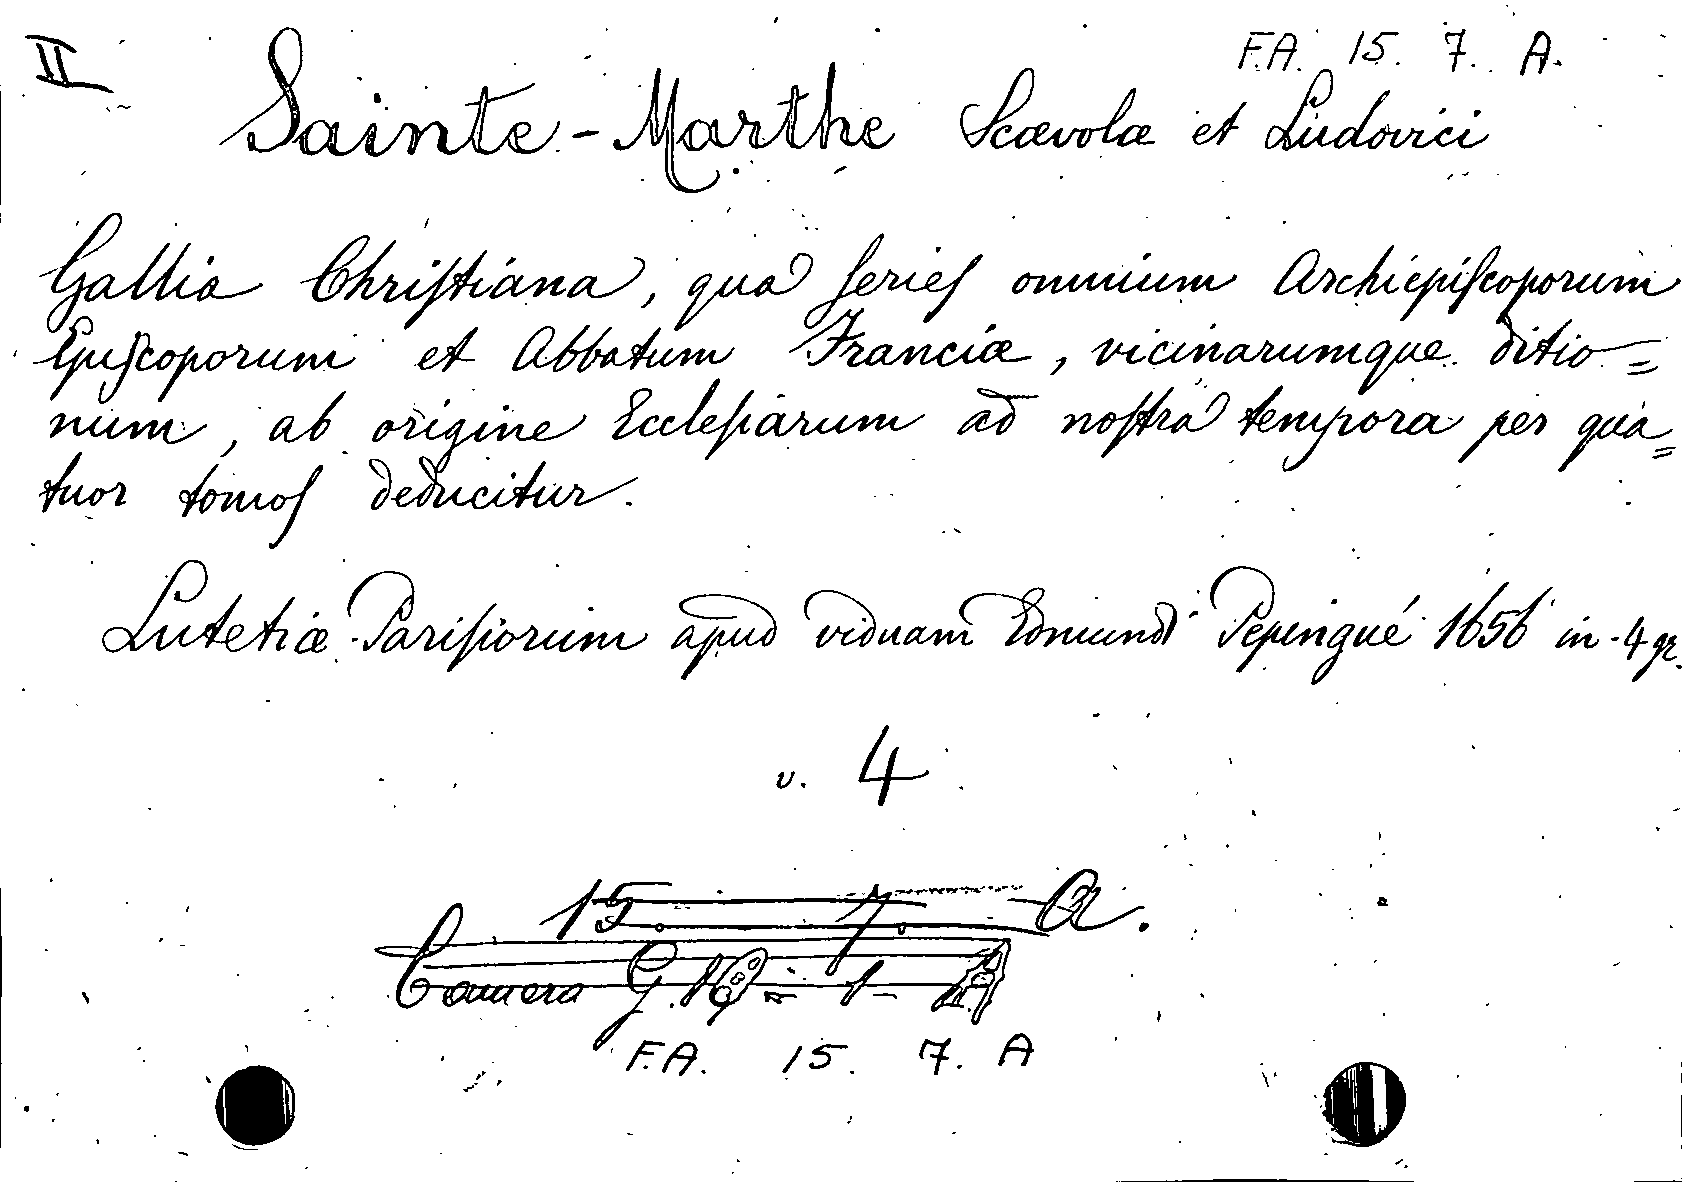 II
F.A. 15. 7. A.
Sainte-Marthe Scævolæ et Ludovici
Gallia Chriſtiana, qua ſerieſ omnium Archiepiſcoporum
Epiſcoporum et Abbatum Franciæ, vicinarumque ditio=
num, ab origine Eccleſiarum ad noſtra tempora per qua=
tuor tomoſ deducitur.
Lutetiæ Pariſiorum apud viduam Edmundi Pepingué 1656 in-4 gr.
v. 4
15. 7. A.
Camera G. - 1 -
F.A. 15. 7. A